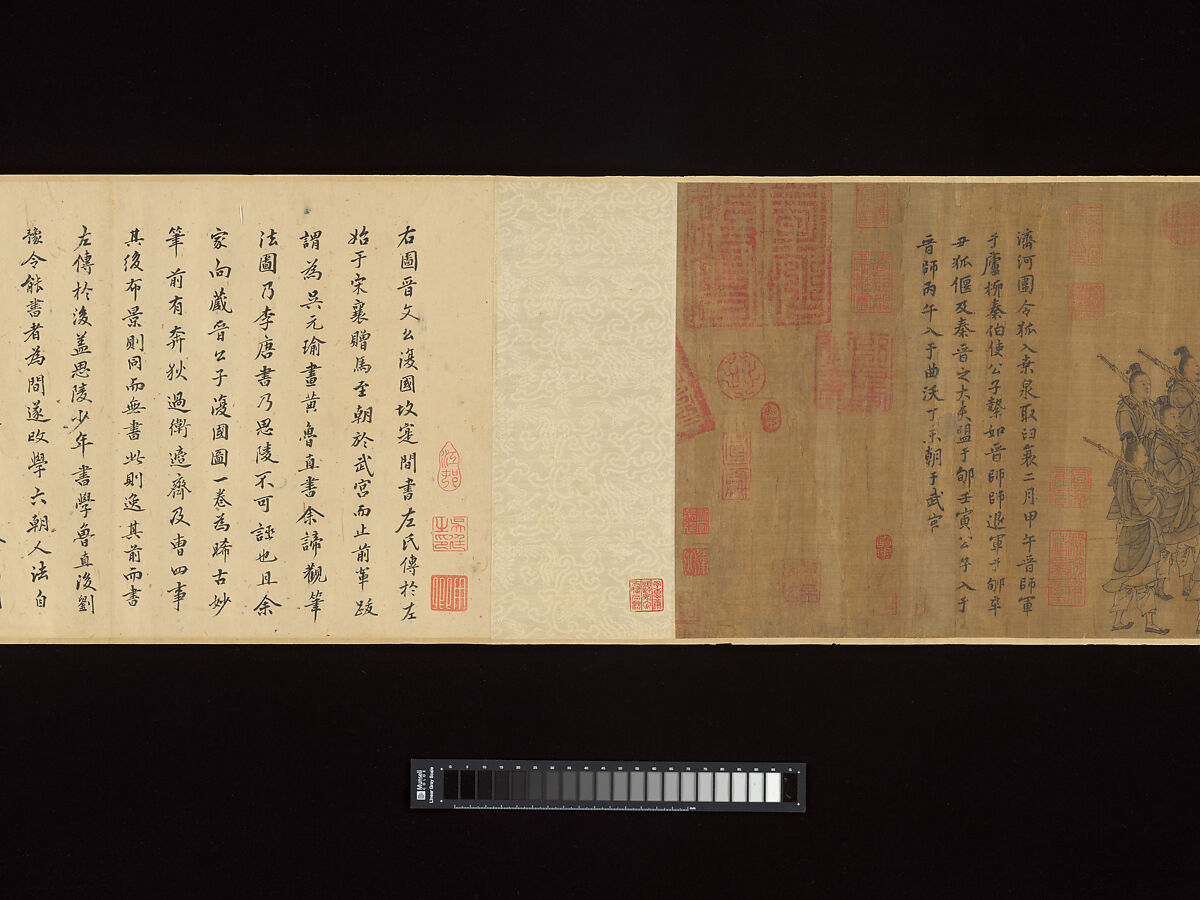 濟河圍令狐入桒泉取臼衰二月甲午晉師軍
于廬柳秦伯使公子縶如晉師師退軍于郇辛
丑狐偃及秦晉之大夫盟于郇壬寅公子入于
晉師丙午入于曲沃丁未朝于武宮
右圖晉文公復國故寔間書左氏傳於左
始于宋襄贈馬至朝於武宮而止前軰跋
謂為吳元瑜畫黃魯直書余諦觀筆
法圖乃李唐書乃思陵不可誣也且余
家向藏晉公子復國圖一卷為晞古妙
筆前有奔狄過衛適齊及曹四事
其後布景則同而無書此則逸其前而書
左傳於後蓋思陵少年書學魯直後劉
豫令能書者為間遂改學六朝人法自
江邨
Munsell
COLOR
Linear Gray Scale